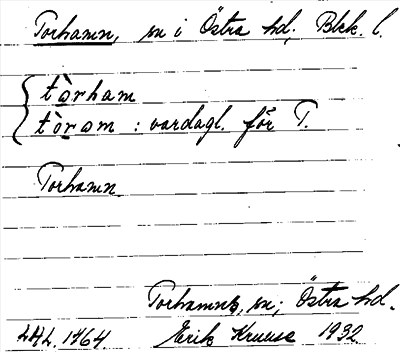 Torhamn, sn i Östra hd; Blek. l.
tòrham
tòrom : vardagl. för T.
Torhamn
Torhamns, sn; Östra hd.
LAL. 1764. Erik Kruuse 1932